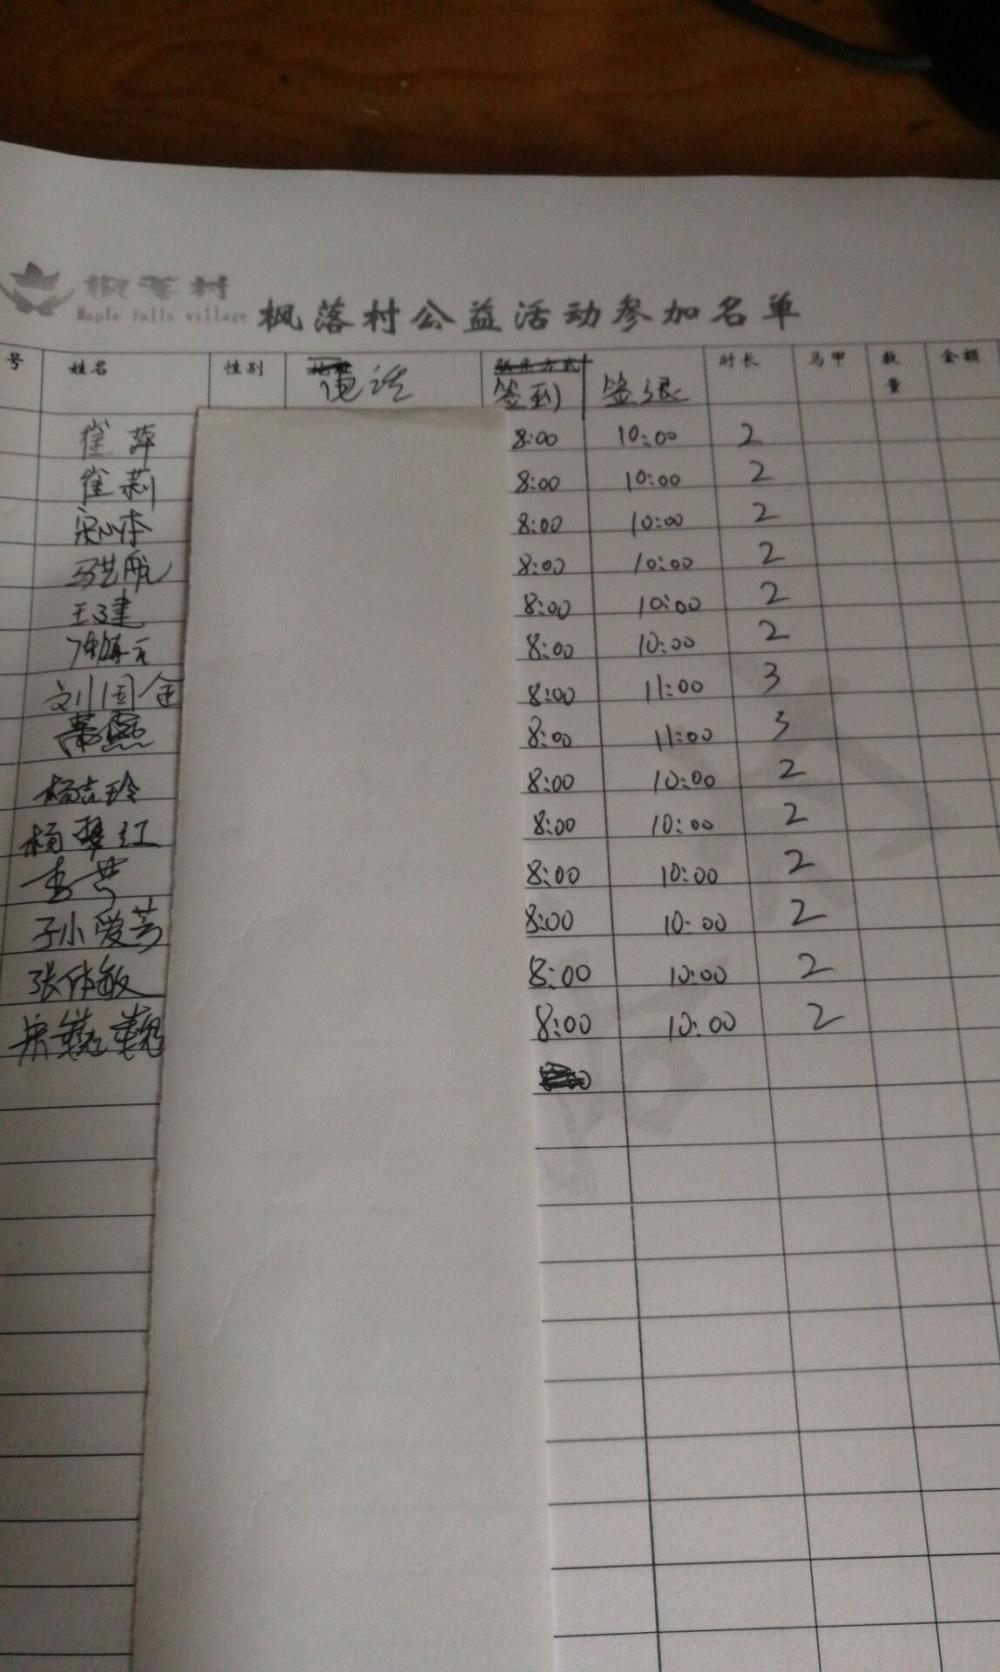 枫落村
Maple falls village 枫落村公益活动参加名单
号 姓名 性别 電话 签到 签退 时长 马甲 数量 金额
崔萍 8:00 10:00 2
崔莉 8:00 10:00 2
8:00 10:00 2
马艺航 8:00 10:00 2
王建 8:00 10:00 2
8:00 10:00 2
刘国金 8:00 11:00 3
8:00 11:00 3
杨志玲 8:00 10:00 2
杨翠红 8:00 10:00 2
8:00 10:00 2
孙爱芳 8:00 10:00 2
张体敏 8:00 10:00 2
8:00 10:00 2